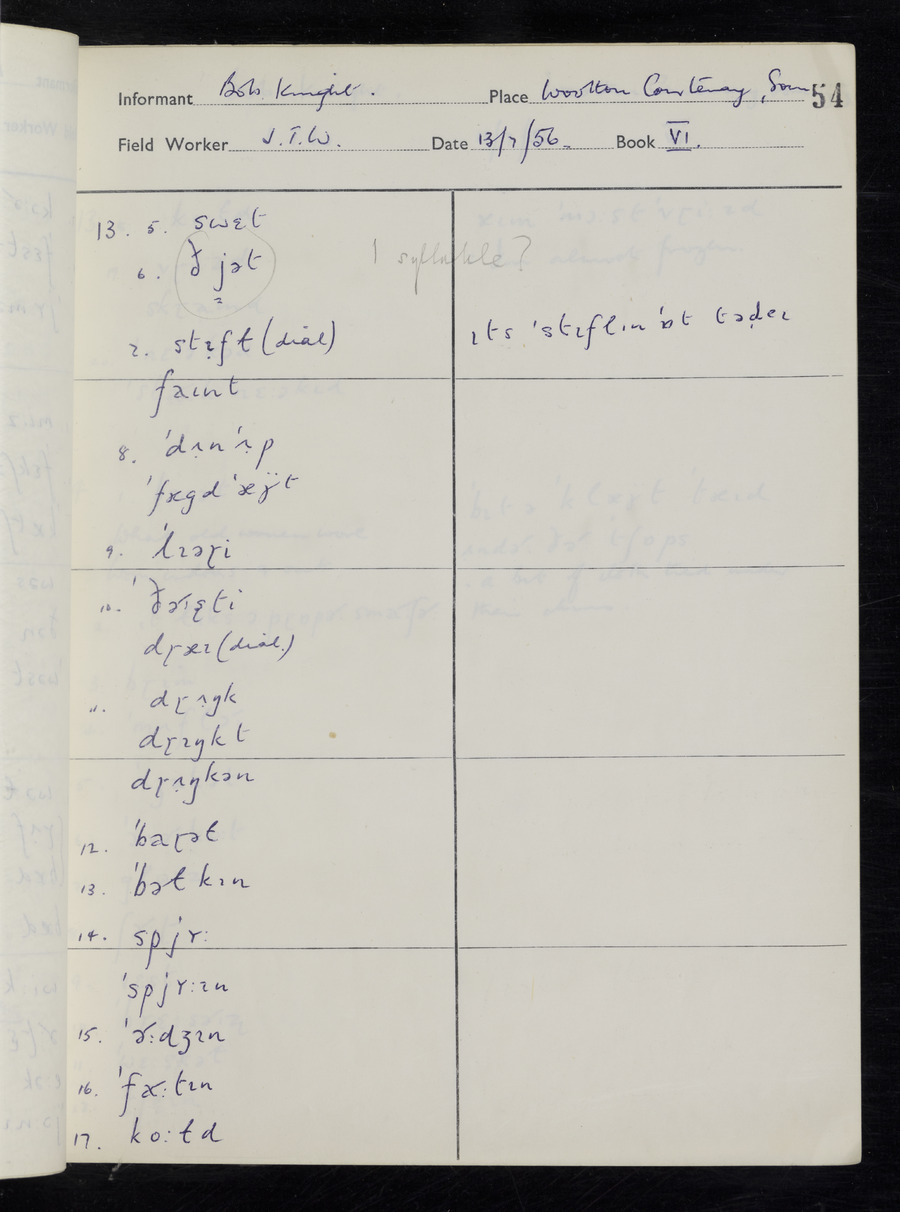 Informant Bob Knight. Place Wootton Courtenay, Som 54
Field Worker J.T.W. Date 13/7/56. Book VI.
13. 5. swɛt
6. ðjət 1 syllable?
7. stɪfɫ (dial) ɪts ˈstɪflɪn ˈɒt tədeɪ
faɪnt
8. ˈdɪnˈɪp
ˈfægdˈæÿt
9.
10. ˈðəɪɛti
dɽæɪ (dial.)
11. dɽɪŋk
dɽɪŋkt
dɽɪŋkən
12. ˈbaɽət
13. ˈbətkɪn
14. spjʏ:
ˈspjʏ:ɪn
15. ˈɤ:dʒɪn
16. ˈfɤ:tɪn
17. ko:ɫd